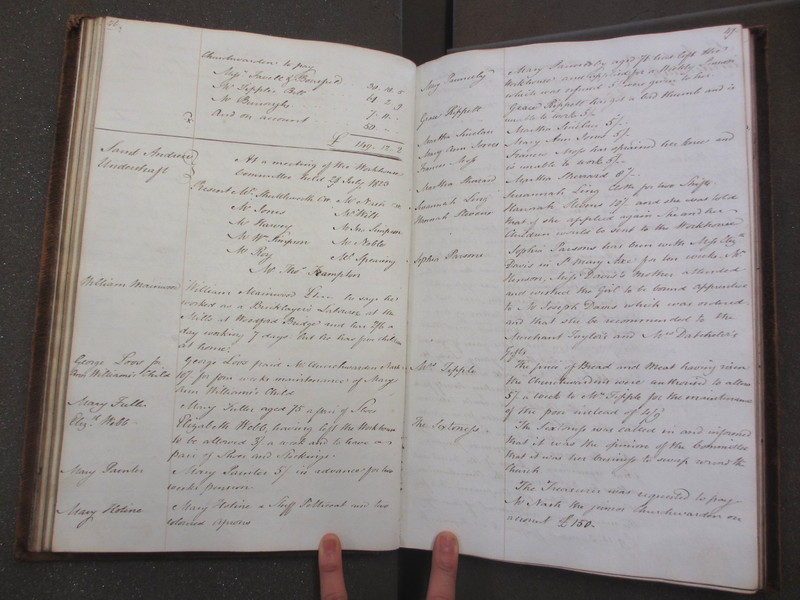 26
Churchwarden to pay
Messrs
20. 10. 8
Mr Tipple's Bill
61. 2. 3
Mr Burroughs
7. 11. -
And on account
50
£
149. 12. 2
Saint Andrew
Undershaft
At a meeting of the Workhouse
Committee held 28 July 1820
Present Mr Shuttleworth CW Mr Nash CW
Mr Jones Mr Witt
Mr Harvey Mr Jno Simpson
Mr Wm Simpson Mr Noble
Mr Roy Mr Spearing
Mr Thos Hampton
William Mainwood
William Mainwood to say he
worked as a Bricklayer's Labourer at the
Mills at Woodford Bridge and has 2/6 a
day working 7 days but has two children
at home.
George Loos Jr
Ann William's Child
George Loos paid Mr Churchwarden Nash
10/ for four weeks maintenance of Mary
Ann William's Child
Mary Fuller
Mary Fuller aged 78 a pair of Shoes
Elizth Webb
Elizabeth Webb having left the Workhouse
to be allowed 3/ a week and to have a
pair of Shoes and Stockings
Mary Painter
Mary Painter 5/ in advance for two
weeks pension
Mary Hotine
Mary Hotine a Stuff Petticoat and two
coloured aprons
27
Mary
Mary aged 71 has left the
Workhouse and applied for a Weekly Pension
which was refused 5/ were given to her
Grace Rippett
Grace Rippett has got a bad thumb and is
unable to work 5/
Martha Sinclan
Martha Sinclan 5/-
Mary Ann Jones
Mary Ann Jones 5/-
Frances Moss
Frances Moss has sprained her knee and
is unable to work 5/-
Martha Stenard
Martha Stenard 6/-
Susannah Ling
Susannah Ling Cloth for two Shifts
Hannah Stevens
Hannah Stevens 10/ and she was told
that if she applied again she and her
Children would be sent to the Workhouse
Sophia Parsons
Sophia Parsons has been with Messrs
Davis in St Mary Axe for ten weeks Mr
Henson, Miss Davis's Mother attended
and wished the Girl to be bound apprentice
to Mr Joseph Davis which was ordered
and that she be recommended to the
Merchant Taylors and Mrs Datchelor's
Gifts
Mrs Tipple
The price of Bread and Meat having risen
the Churchwardens were authorised to allow
5/ a week to Mrs Tipple for the maintenance
of the poor instead of 4/9
The Sextoness
The Sextoness was called in and informed
that it was the opinion of the Committee
that it was her business to sweep round the
Church
The Treasurer was requested to pay
Mr Nash the junior Churchwarden on
account £150